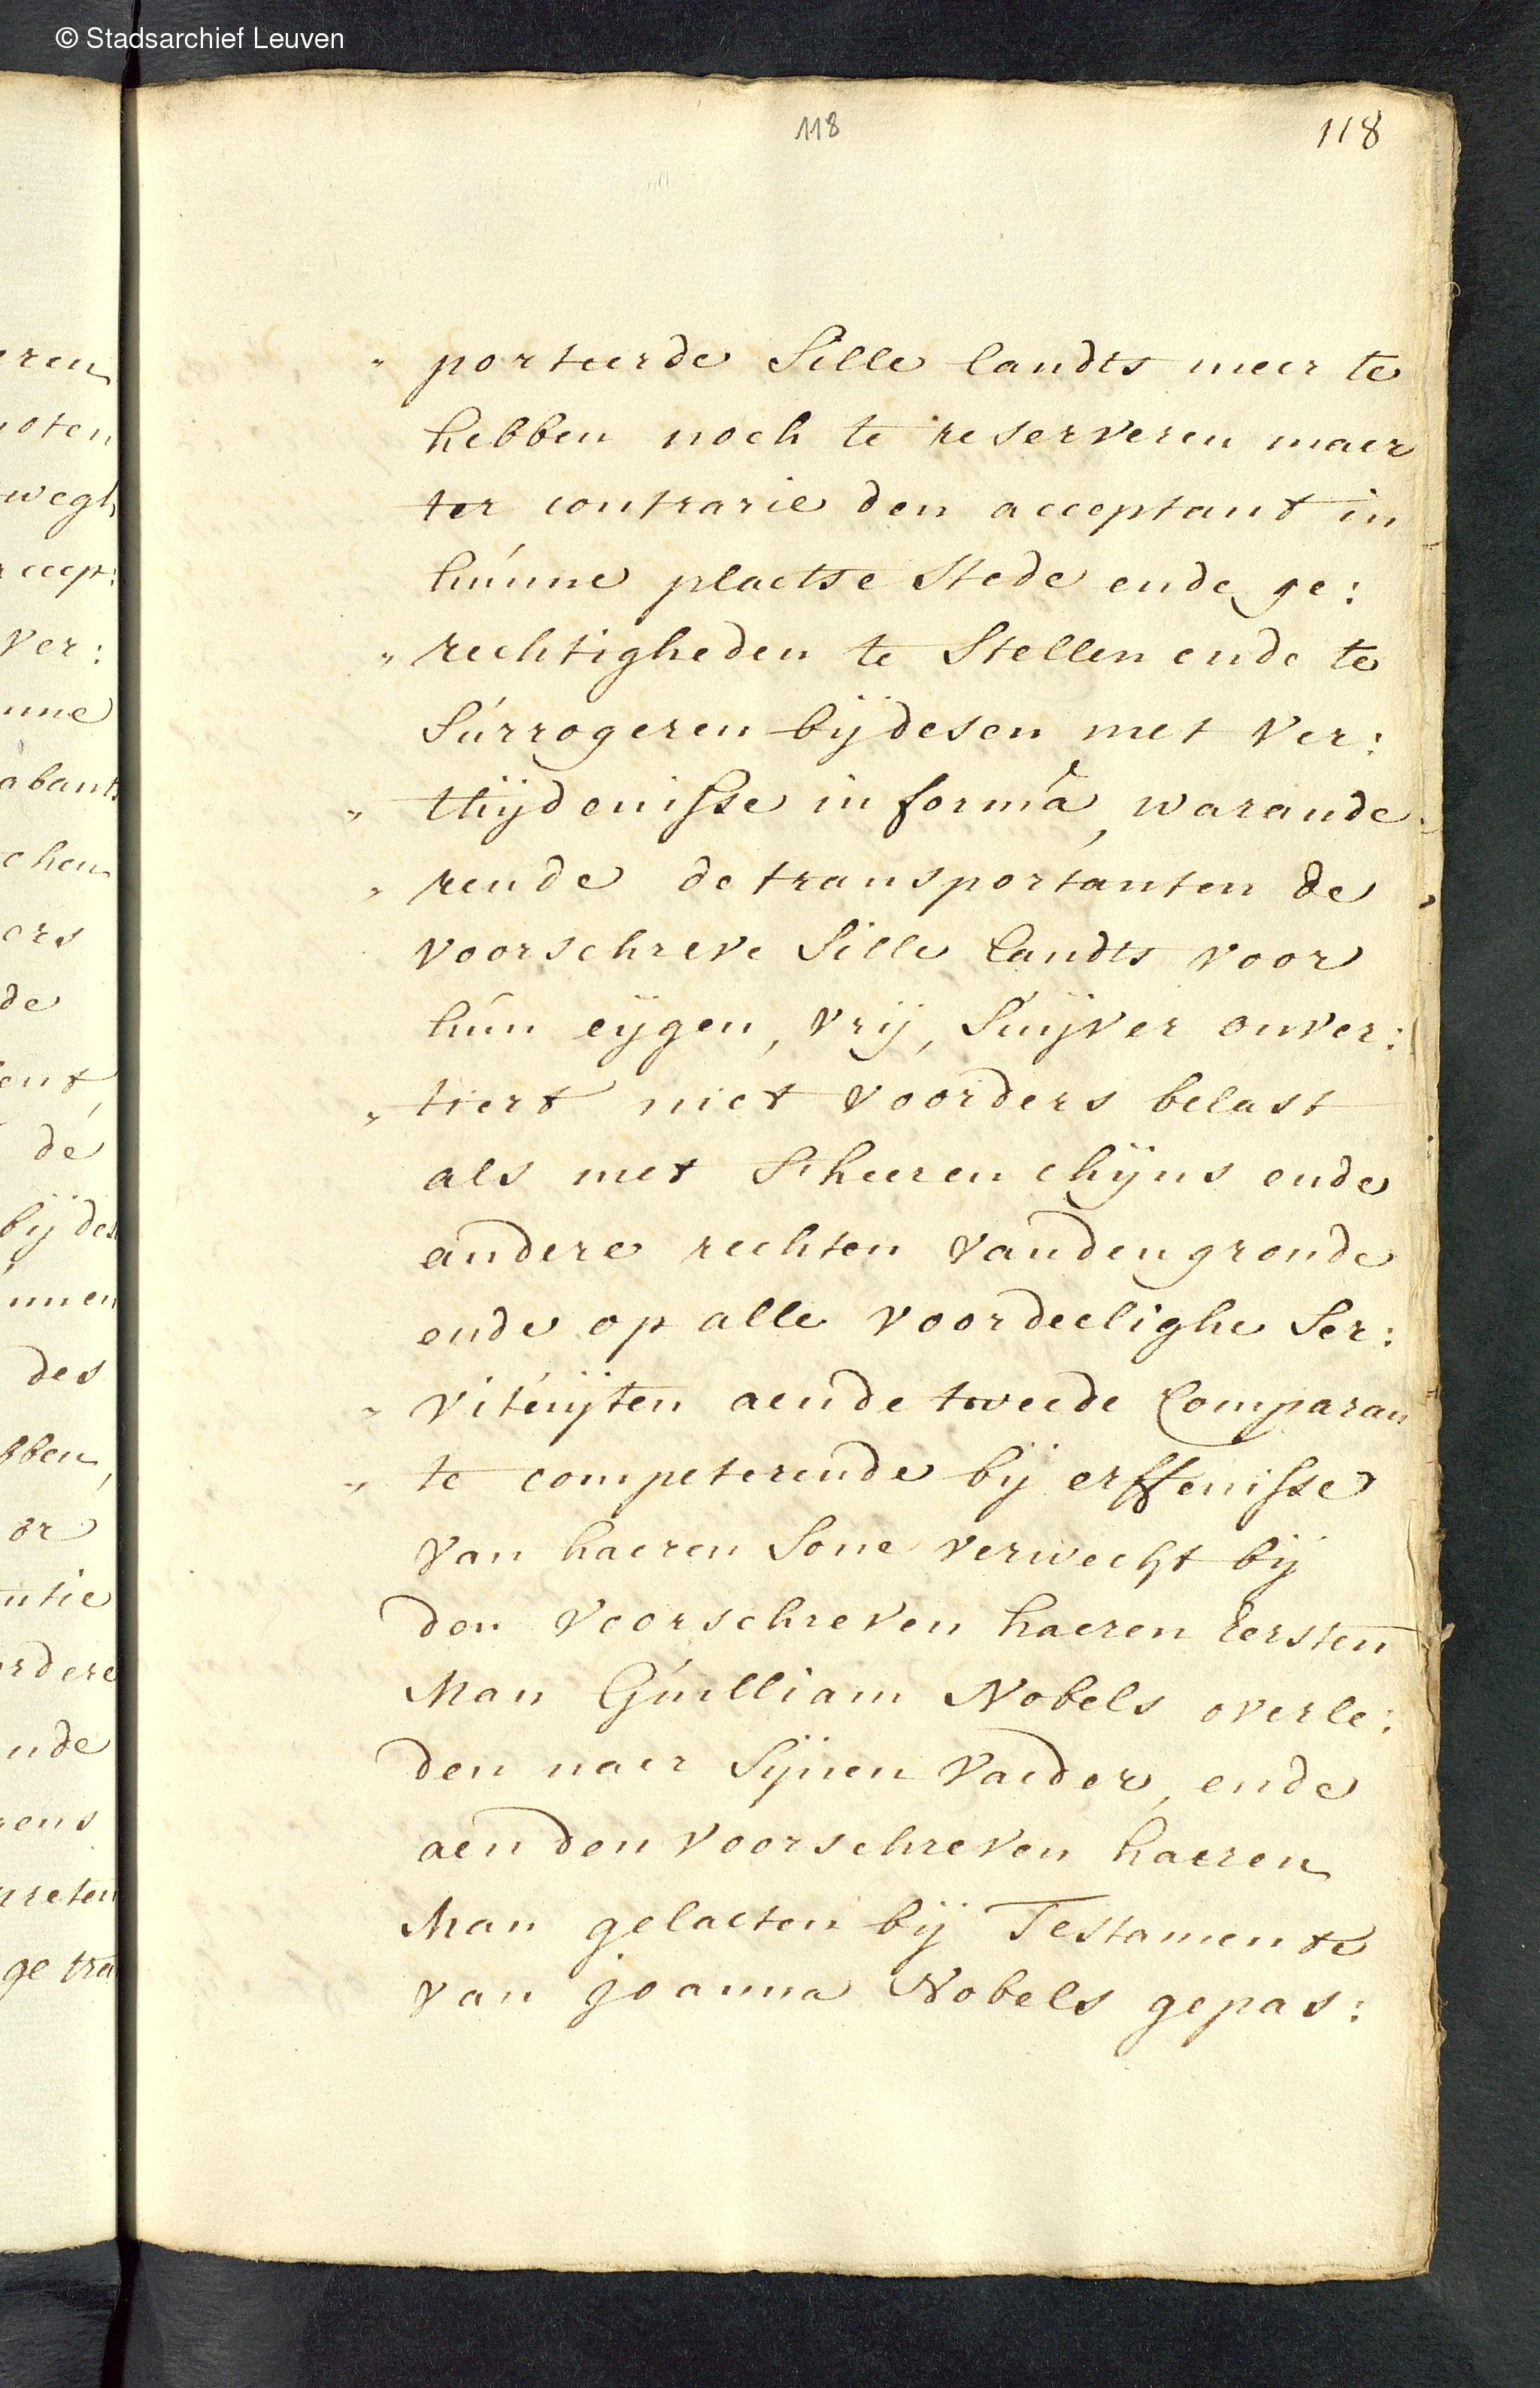 © Stadsarchief Leuven
118
118
„ porteerde Sille landts meer te
hebben noch te reserveren maer
ter contrarie den acceptant in
húnne plaetse Stede ende ge:
„ rechtigheden te Stellen ende te
Súrrogeren bij desen met ver:
„ thijdenisse in formâ, warande
„ rende de transportanten de
voorschreve Sille landts voor
hún eijgen, vrij, Suijver onver:
„ tiert niet voorders belast
als met S'heeren chijns ende
andere rechten vanden gronde
ende op alle voordeelighe Ser:
„ vitúijten aende tweede Comparan
„ te competerende bij erffenisse
van haeren Sone verweckt bij
den voorschreven haeren Eersten
Man Gúilliam Nobels overle:
den naer Sijnen Vaeder, ende
aen den voorschreven haeren
Man gelaeten bij Testamente
van Joanna Nobels gepas:
ren
oten
wegh
ver:
abants
chen
ers
de
ent,
de
bij des
des
bben,
or
ntie
rdere
nde
ens
ge tra